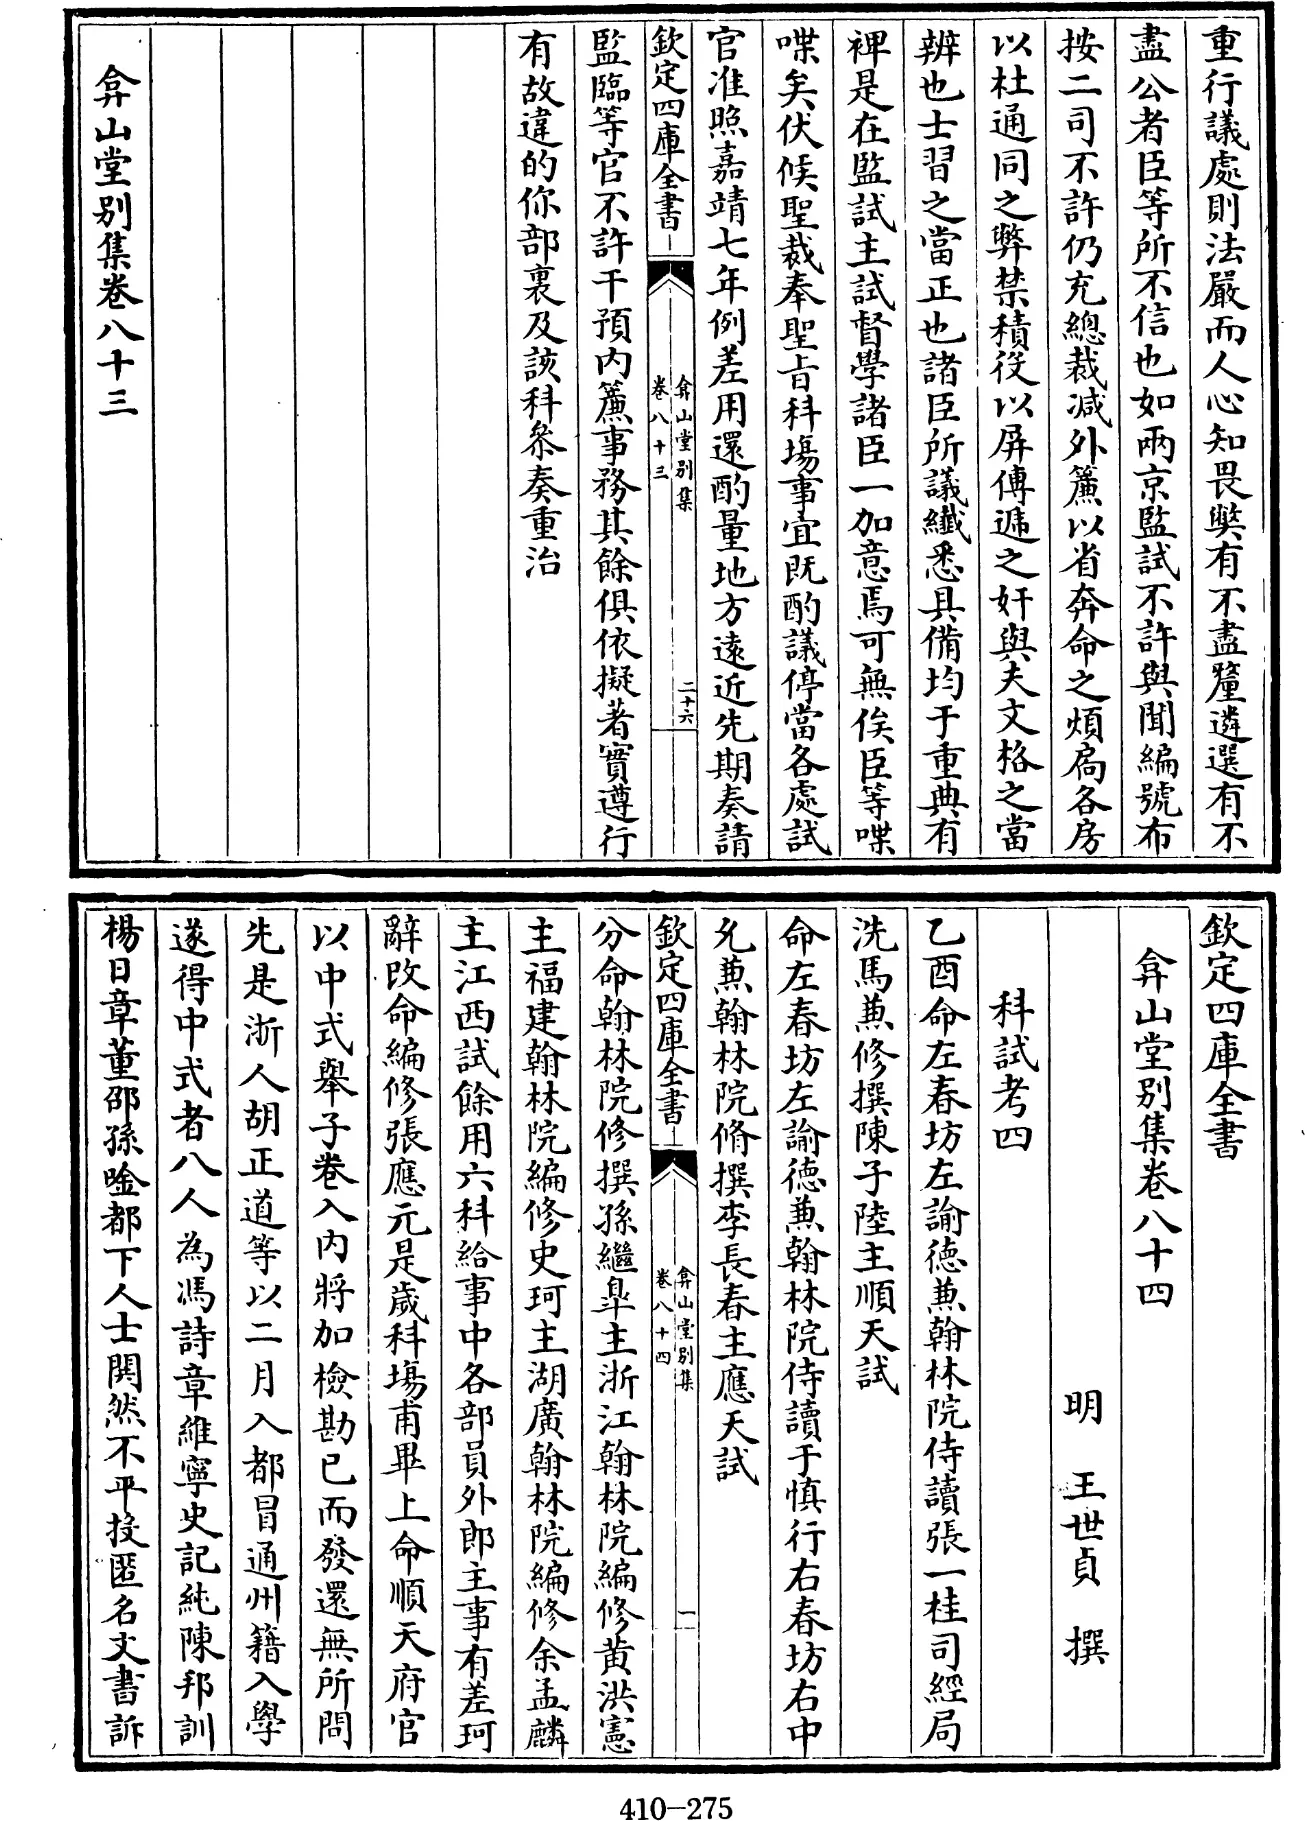 重行議處則法嚴而人心知畏弊有不盡釐遴選有不
盡公者臣等所不信也如兩京監試不許與聞編號布
按二司不許仍充總裁減外簾以省奔命之煩扃各房
以杜通同之弊禁積役以屏傳遞之奸與夫文格之當
辨也士習之當正也諸臣所議纖悉具備均于重典有
裨是在監試主試督學諸臣一加意焉可無俟臣等喋
喋矣伏候聖裁奉聖旨科場事宜既酌議停當各處試
官准照嘉靖七年例差用還酌量地方遠近先期奏請
欽定四庫全書
弇山堂別集
卷八十三
二十六
監臨等官不許干預內簾事務其餘俱依擬著實遵行
有故違的你部裏及該科叅奏重治
弇山堂別集卷八十三
欽定四庫全書
弇山堂別集卷八十四
明 王世貞 撰
科試考四
乙酉命左春坊左諭德兼翰林院侍讀張一桂司經局
洗馬兼修撰陳于陛主順天試
命左春坊左諭德兼翰林院侍讀于慎行右春坊右中
允兼翰林院脩撰李長春主應天試
欽定四庫全書
弇山堂別集
卷八十四
一
分命翰林院修撰孫繼皐主浙江翰林院編修黃洪憲
主福建翰林院編修史珂主湖廣翰林院編修余孟麟
主江西試餘用六科給事中各部員外郎主事有差珂
辭改命編修張應元是歲科場甫畢上命順天府官
以中式舉子卷入內將加檢勘已而發還無所問
先是浙人胡正道等以二月入都冒通州籍入學
遂得中式者八人為馮詩章維寧史記純陳邦訓
楊日章董邵孫喻都下人士鬨然不平投匿名文書訴
410-275